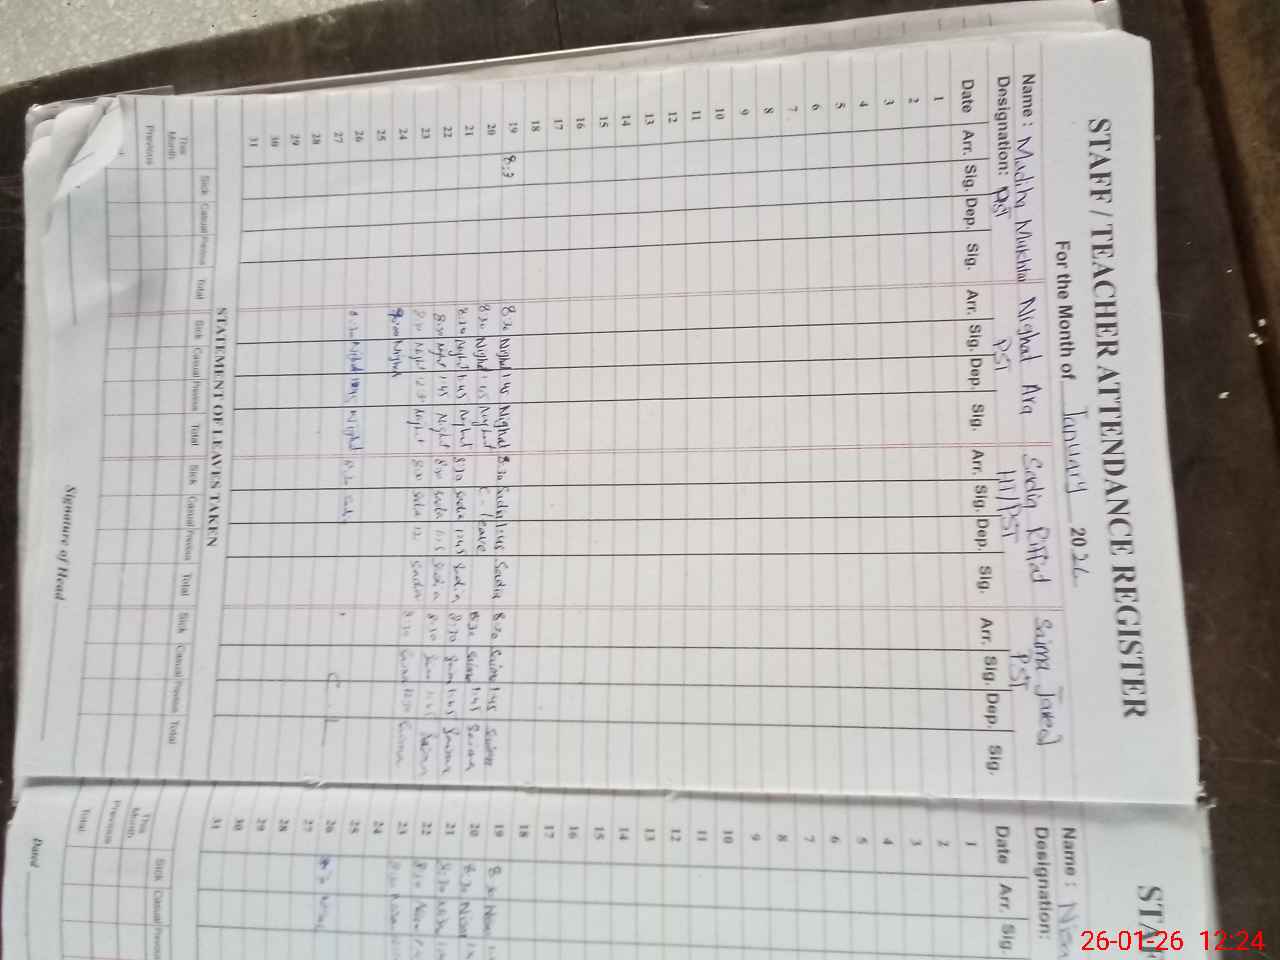 STAFF / TEACHER ATTENDANCE REGISTER
For the Month of January 2026
Name: Madiha Mukhtar Nighat Ara Sadia Riffat Saima Javed
Designation: PST PST HT/PST PST
Date Arr. Sig. Dep. Sig. Arr. Sig. Dep. Sig. Arr. Sig. Dep. Sig. Arr. Sig. Dep. Sig.
1
2
3
4
5
6
7
8
9
10
11
12
13
14
15
16
17
18
19 8:3 8:30 Nighat 1:45 Nighat 8:30 Sadia 1:45 Sadia 8:30 Saima 1:45 Saima
20 8:30 Nighat 1:45 Nighat C-leave 8:30 Saima 1:45 Saima
21 8:30 Nighat 1:45 Nighat 8:30 Sadia 1:45 Sadia 8:30 Saima 1:45 Saima
22 8:30 Nighat 1:45 Nighat 8:30 Sadia 1:45 Sadia 8:30 Saima 1:45 Saima
23 8:30 Nighat Nighat 8:30 Sadia Sadia 8:30 Saima 12:30 Saima
24 9:00 Nighat
25
26 8:30 Nighat Nighat 8:30 Sadia
27
28
29
30
31
STATEMENT OF LEAVES TAKEN
Sick Casual Previous Total Sick Casual Previous Total Sick Casual Previous Total Sick Casual Previous Total
This Month
Previous
Signature of Head
STA
Name:
Designation:
Date Arr. Sig.
1
2
3
4
5
6
7
8
9
10
11
12
13
14
15
16
17
18
19
20 8:30
21 8:30
22 8:30
23
24
25
26
27
28
29
30
31
Sick Casual Previous
This Month
Previous
Total
Dated
26-01-26 12:24